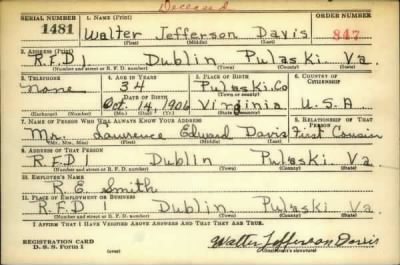 Deceased
SERIAL NUMBER 1. NAME (Print) ORDER NUMBER
1481 Walter Jefferson Davis 847
(First) (Middle) (Last)
2. ADDRESS (Print)
R.F.D 1 Dublin Pulaski Va.
(Number and street or R. F. D. number) (Town) (County) (State)
3. TELEPHONE 4. AGE IN YEARS 5. PLACE OF BIRTH 6. COUNTRY OF CITIZENSHIP
none 34 Pulaski.Co
DATE OF BIRTH (Town or county)
Oct. 14, 1906 Virginia U.S.A
(Exchange) (Number) (Mo.) (Day) (Yr.) (State or country)
7. NAME OF PERSON WHO WILL ALWAYS KNOW YOUR ADDRESS 8. RELATIONSHIP OF THAT PERSON
Mr. Lawrence Edward Davis First Cousin
(Mr., Mrs., Miss) (First) (Middle) (Last)
9. ADDRESS OF THAT PERSON
R.F.D 1 Dublin Pulaski Va
(Number and street or R. F. D. number) (Town) (County) (State)
10. EMPLOYER'S NAME
R.E. Smith
11. PLACE OF EMPLOYMENT OR BUSINESS
R.F.D 1 Dublin Pulaski Va
(Number and street or R. F. D. number) (Town) (County) (State)
I AFFIRM THAT I HAVE VERIFIED ABOVE ANSWERS AND THAT THEY ARE TRUE.
REGISTRATION CARD
D. S. S. Form 1 Walter Jefferson Davis
(Registrant's signature)